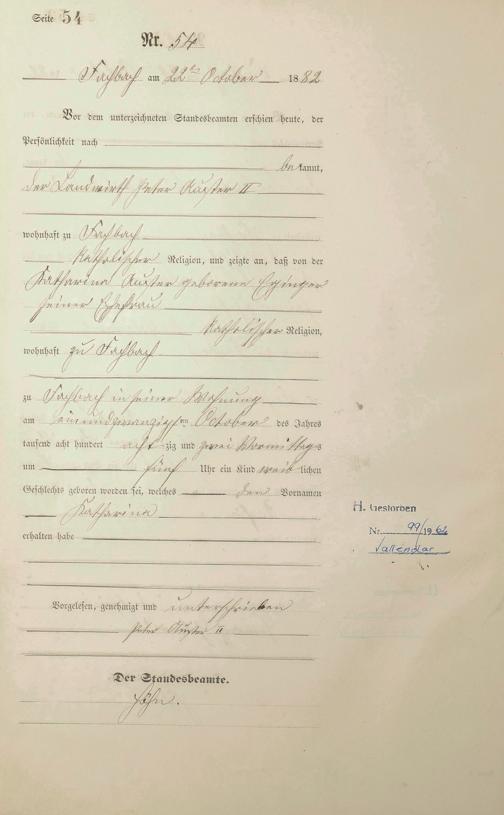 Seite 54
Nr. 54
Fachbach am 22ten October 1882
Vor dem unterzeichneten Standesbeamten erschien heute, der
Persönlichkeit nach
bekannt,
der Landwirth Peter II
wohnhaft zu Fachbach
katholischer Religion, und zeigte an, daß von der
Katharina geborene
seiner Ehefrau
katholischer Religion,
wohnhaft zu Fachbach
zu Fachbach in seiner Wohnung
am einundzwanzigsten October des Jahres
tausend acht hundert achtzig und zwei Vormittags
um fünf Uhr ein Kind weiblichen
Geschlechts geboren worden sei, welches den Vornamen
Katharina
erhalten habe
H. Gestorben
Nr. 99/1962
Vallendar
Vorgelesen, genehmigt und unterschrieben
Peter II
Der Standesbeamte.
Höhn.